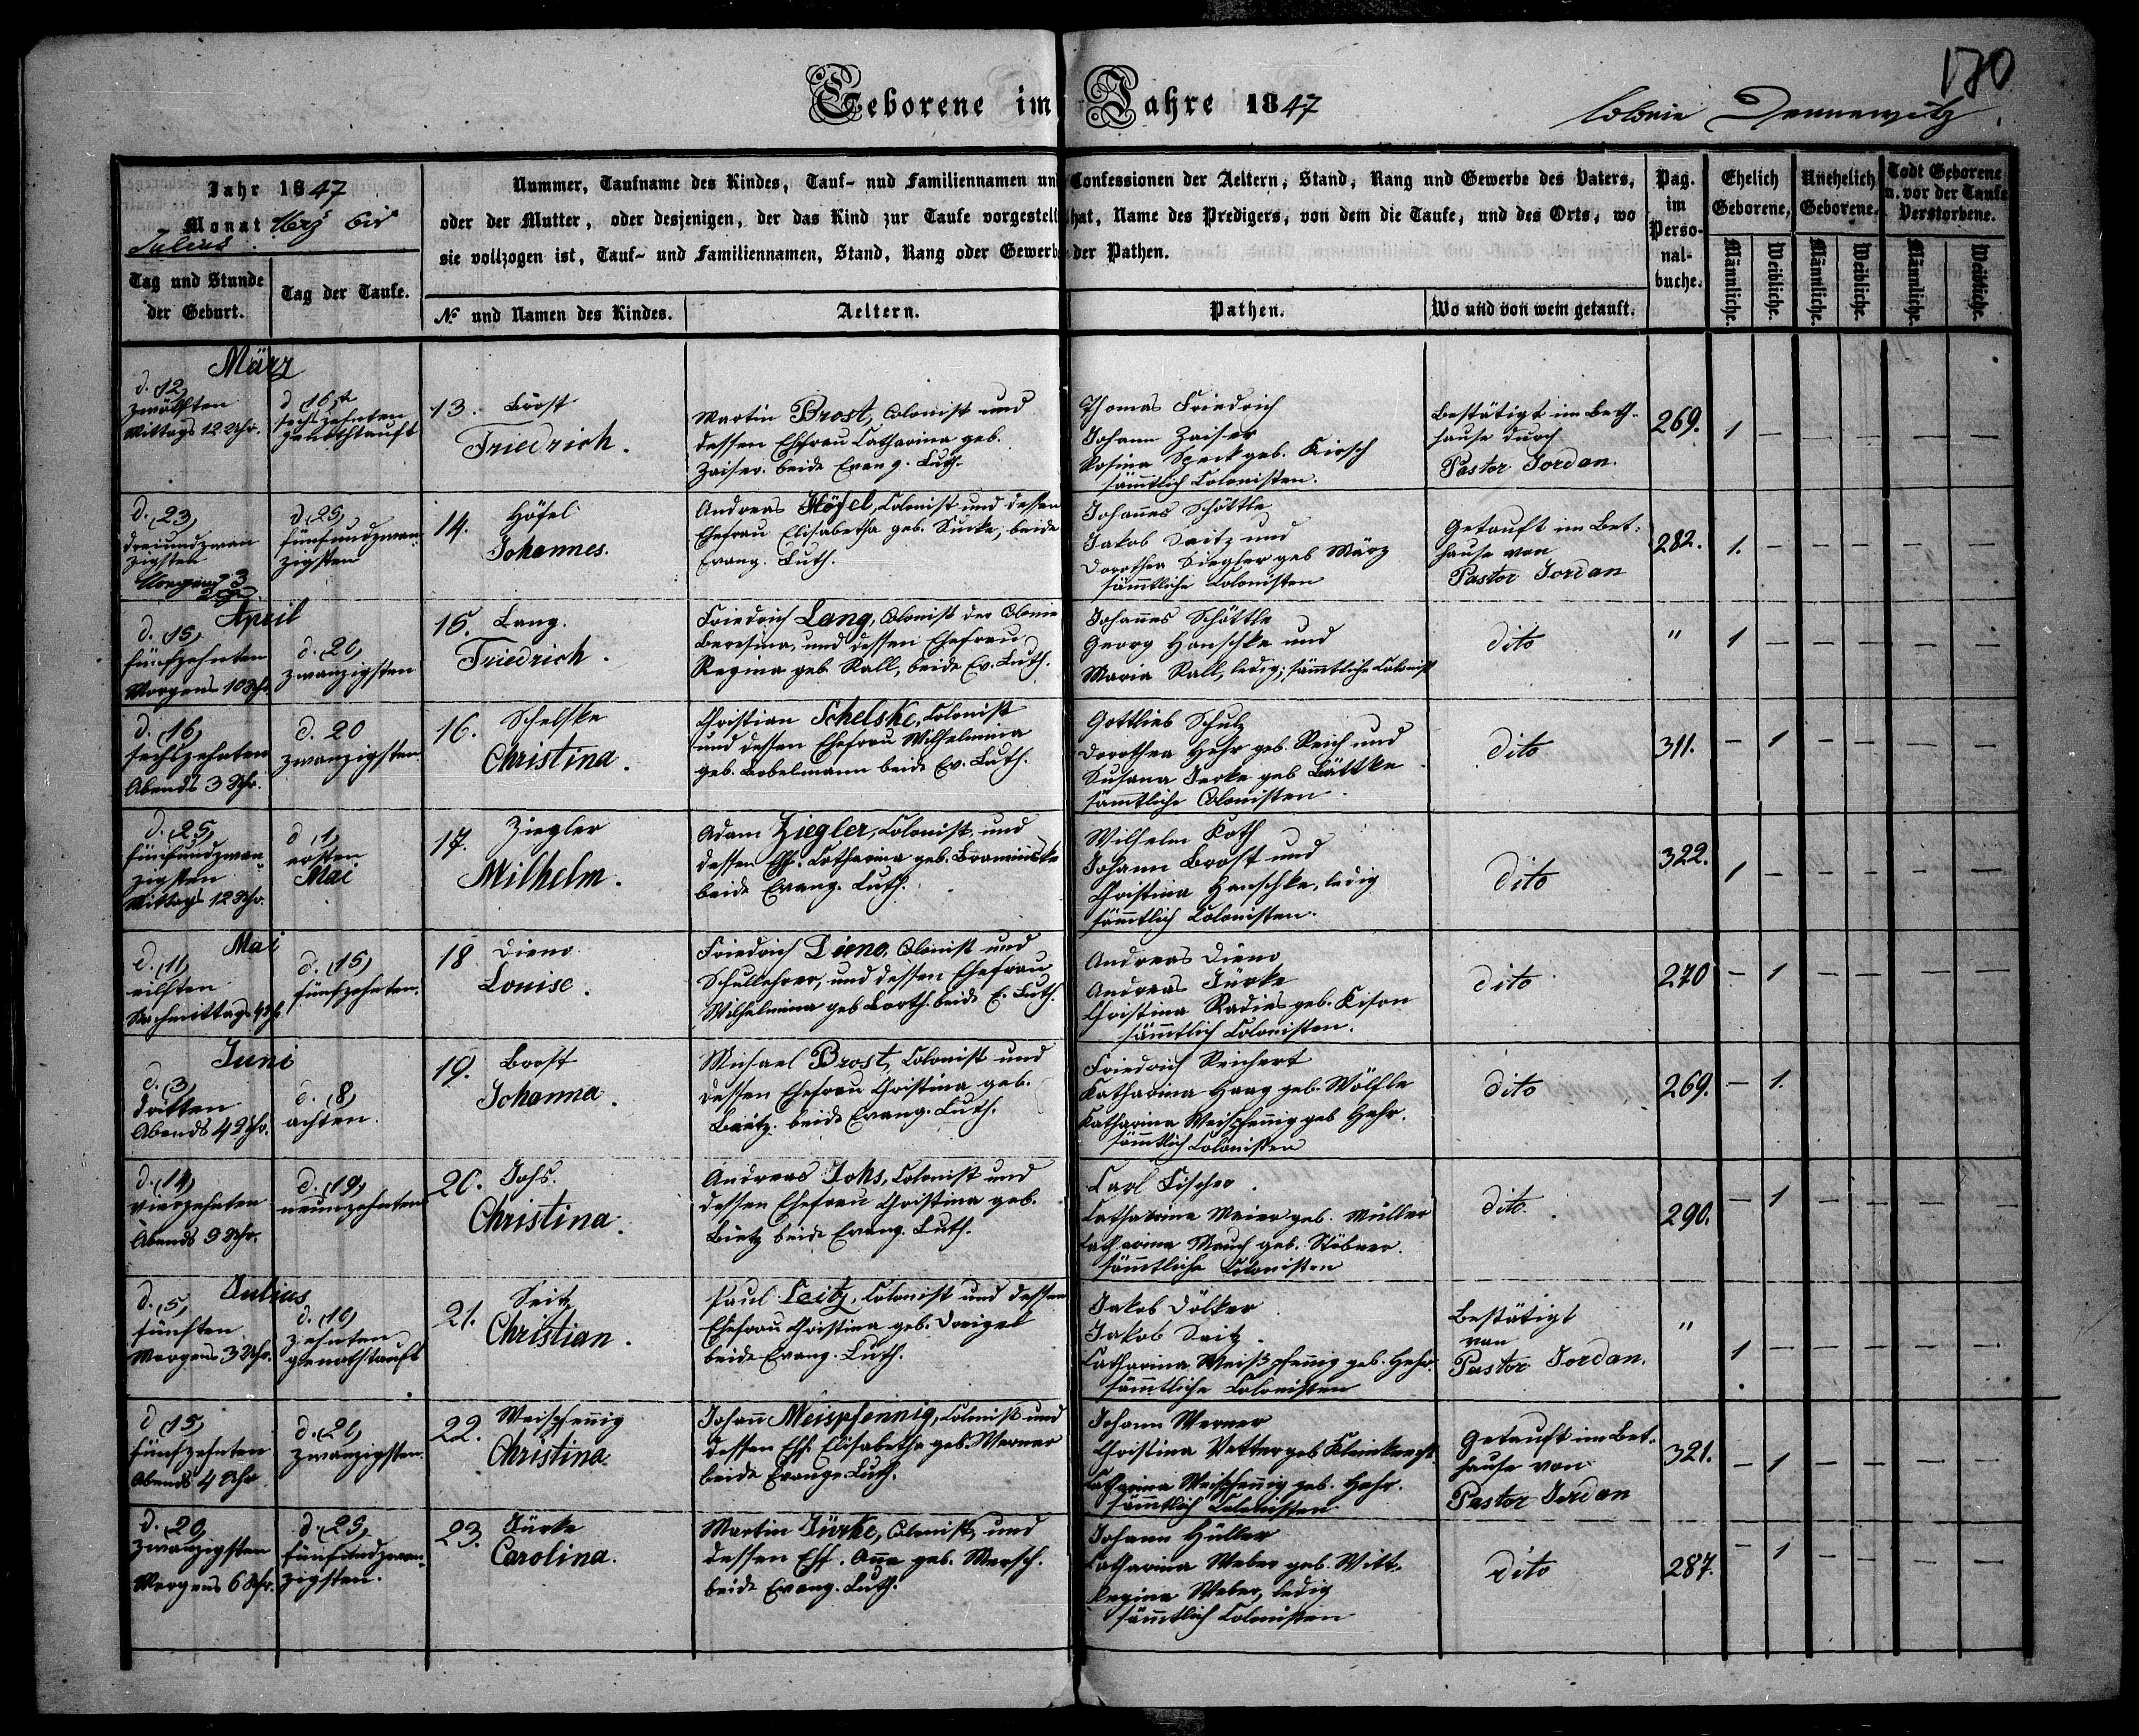 180
Geborene im Jahre 1847
Colonie Dennewitz.
Jahr 1847
Monat Merz bis
Julius.
Tag und Stunde
der Geburt.
Tag der Taufe.
Nummer, Taufname des Kindes, Tauf- und Familiennamen und Confessionen der Aeltern, Stand, Rang und Gewerbe des Vaters,
oder der Mutter, oder desjenigen, der das Kind zur Taufe vorgestellt hat, Name des Predigers, von dem die Taufe, und des Orts, wo
sie vollzogen ist, Tauf- und Familiennamen, Stand, Rang oder Gewerbe der Pathen.
№ und Namen des Kindes.
Aeltern.
Pathen.
Wo und von wem getauft.
Pag.
im
Perso-
nal-
buche.
Ehelich
Geborene.
Unehelich
Geborene.
Todt Geborene
u. vor der Taufe
Verstorbene.
Männliche.
Weibliche.
Männliche.
Weibliche.
Männliche.
Weibliche.
März
d. (12)
zwölften
Mittags 12 Uhr.
d. (16)
sechszehnten
genothtauft
13. Brost
Friedrich.
Martin Brost, Colonist und
dessen Ehefrau Catharina geb.
Zaiser. beide Evang. Luth.
Thomas Friedrich
Johann Zaiser
Rosina Speck geb. Kirsch
sämtlich Colonisten.
Bestätigt im Beth-
hause durch
Pastor Jordan.
269. 1 — — — — —
d. (23)
dreiundzwan
zigsten
Morgens 3
Uhr.
d. (25)
fünfundzwan-
zigsten
14. Höfel
Johannes.
Andreas Höfel, Colonist und dessen
Ehefrau Elisabetha geb. Surke, beide
Evang. Luth.
Johannes Schöttle
Jakob Seitz und
Dorothea Ziegler geb März
sämtliche Colonisten
Getauft im Bet-
hause von
Pastor Jordan
282. 1. — — — — —
April
d. (15)
fünfzehnten
Morgens 10 Uhr
d. (20)
zwanzigsten
15. Lang.
Friedrich.
Friedrich Lang, Colonist der Colonie
Beresina, und dessen Ehefrau
Regina geb Rall, beide Ev. Luth.
Johannes Schöttle
Georg Hanschke und
Maria Rall, ledig; sämtliche Colonist
dito
" 1 — — — — —
d. (16)
sechszehnten
Abends 3 Uhr.
d. 20
zwanzigsten
16. Schelske
Christina.
Christian Schelske, Colonist
und dessen Ehefrau Wilhelmina
geb. Bobelmann beide Ev. Luth.
Gottlieb Schulz
Dorothea Hehr geb. Reich und
Susana Jerke geb Bättke
sämtliche Colonisten.
dito
311. — 1 — — — —
d. (25)
fünfundzwan-
zigsten
Mittags 12 Uhr.
d (1)
ersten
Mai
17. Ziegler
Wilhelm.
Adam Ziegler, Colonist, und
dessen Ehf. Catharina geb.
beide Evang. Luth.
Wilhelm Roth
Johann Brost und
Christina Hanschke, ledig
sämtlich Colonisten.
dito
322. 1 — — — — —
Mai
d. (11)
eilften
Nachmittags 4 Uhr
d. (15)
fünfzehnten.
18 Dieno
Louise.
Friedrich Dieno, Colonist und
Schullehrer, und dessen Ehefrau
Wilhelmina geb Barth. beide E. Luth.
Andreas Dieno
Andreas Jürke
Christina Radies geb. Kison
sämtlich Colonisten.
dito
270 — 1 — — — —
Juni
d. (3)
dritten
Abends 4 Uhr.
d. (8)
achten.
19. Brost
Johanna.
Michael Brost, Colonist und
dessen Ehefrau Christina geb.
Bietz. beide Evang. Luth.
Friedrich Reichert
Katharina Haag geb. Wölfle
Katharina Weispfenig geb Hehr.
sämtlich Colonisten
dito
269. — 1. — — — —
d. (14)
vierzehnten
Abends 9 Uhr.
d. (19)
neunzehnten
20. Johs.
Christina.
Andreas Johs, Colonist und
dessen Ehefrau Christina geb.
Bietz beide Evang. Luth.
Carl Fischer.
Catharina Maier geb. Müller
Catharina Mauch geb. Stöbner.
sämtliche Colonisten
dito.
290. — 1 — — — —
Julius
d. (5)
fünften
Morgens 3 Uhr.
d. (10)
zehnten
genothtauft
21. Seitz
Christian.
Paul Seitz, Colonist und dessen
Ehefrau Christina geb. Dreizel
beide Evang. Luth.
Jakob Dölker
Jakob Seitz.
Catharina Weißpfenig geb. Hehr.
sämtliche Colonisten
Bestätigt
von
Pastor Jordan.
" 1 — — — — —
d (15)
fünfzehnten
Abends 4 Uhr
d. (20)
zwanzigsten.
22. Weispfenig
Christina.
Johann Weispfennig, Colonist und
dessen Ehf. Elisabetha geb. Werner
beide Evang. Luth.
Johann Werner
Christina Vetter geb Kleinknecht
Catharina Weispfenig geb. Hehr.
sämtlich Colonisten
Getauft im Bet-
hause von
Pastor Jordan
321. — 1 — — — —
d. (20)
zwanzigsten
Morgens 6 Uhr.
d. (25)
fünfundzwan-
zigsten.
23. Jürke
Carolina.
Martin Jürke, Colonist, und
dessen Ehf. Anna geb. Mersch.
beide Evang. Luth.
Johann Hüller
Catharina Weber geb. Witt.
Regina Weber, ledig
sämtlich Colonisten
dito
287. — 1 — — — —